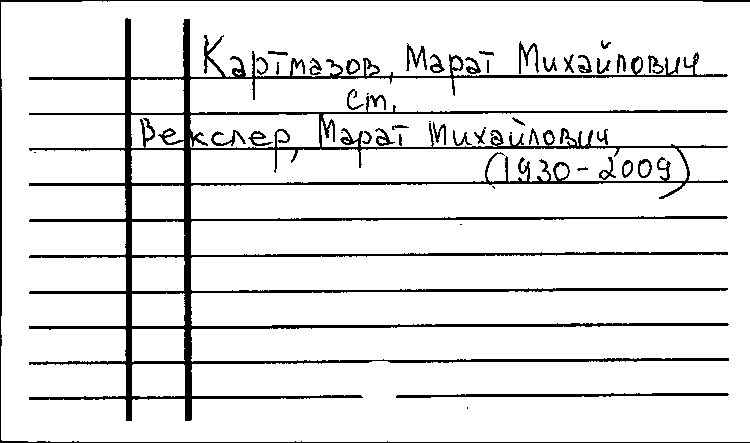 Картмазов, Марат Михайлович
см.
Векслер, Марат Михайлович,
(1930-2009)